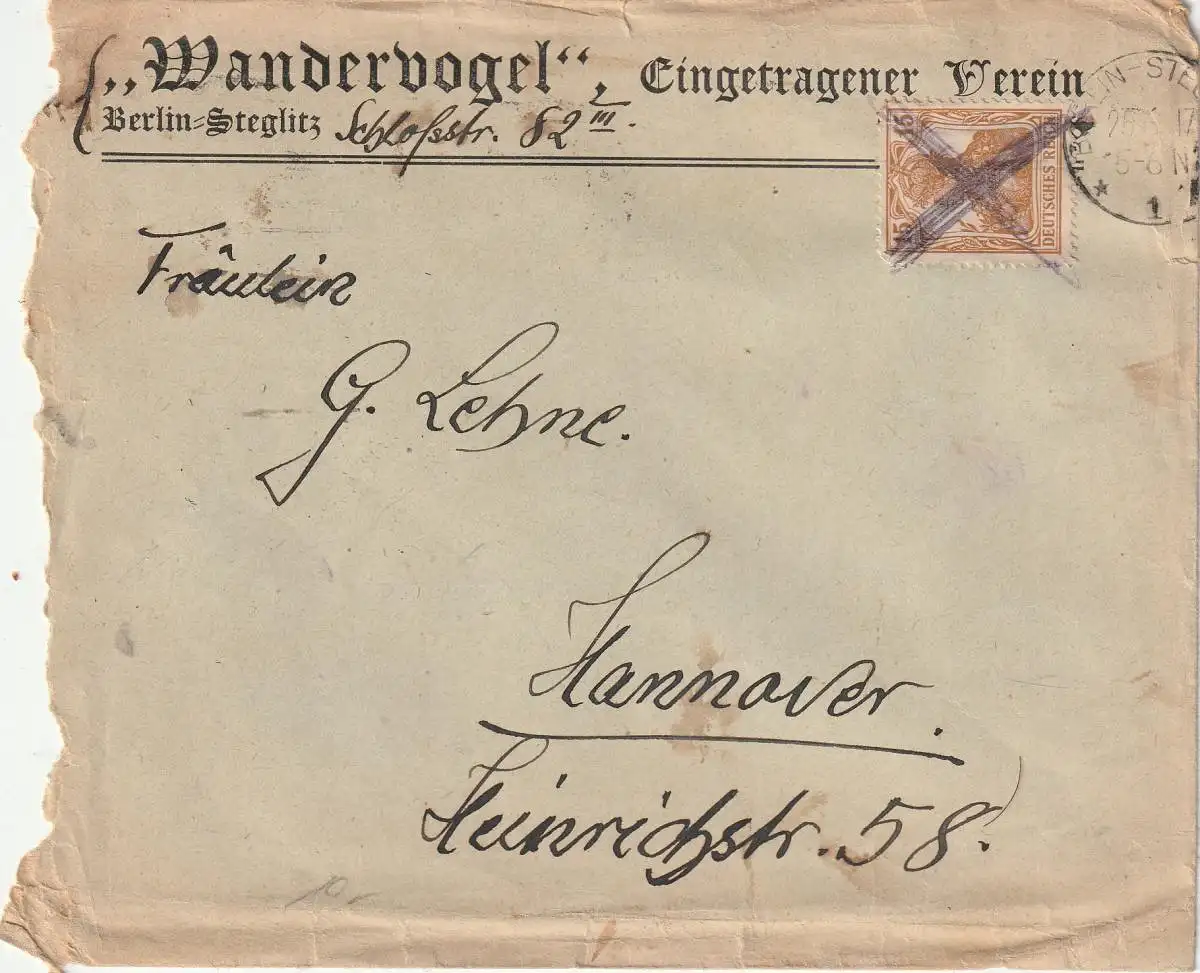 „Wandervogel“, Eingetragener Verein
Berlin-Steglitz Schloßstr. 82 III.
15 15 DEUTSCHES REICH
BERLIN-STE
17
5-6 N
* 1
Fräulein
G. Lehne.
Hannover.
Heinrichstr. 58.